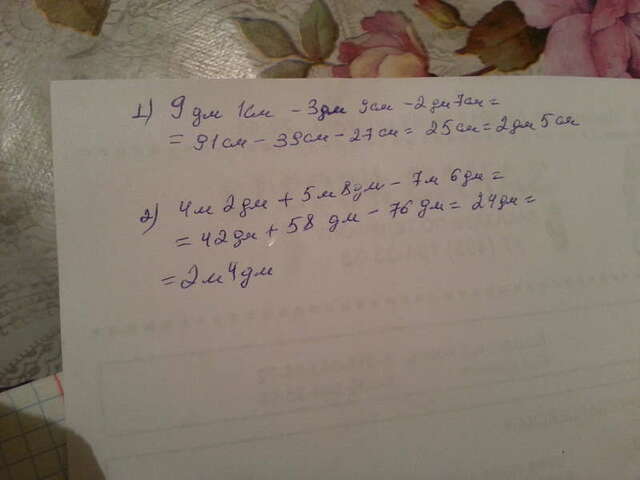 1) 9 дм 1см - 3дм 9см - 2дм 7см =
= 91см - 39см - 27см = 25см = 2дм 5см
2) 4м 2дм + 5м 8дм - 7м 6дм =
= 42дм + 58 дм - 76 дм = 24дм =
= 2м 4дм